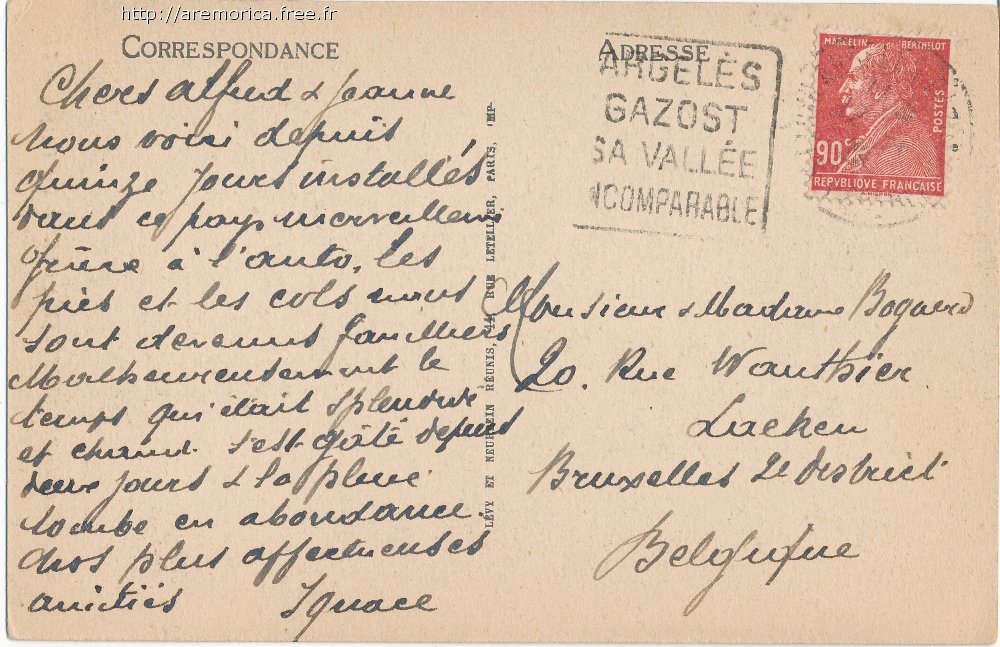 http://aremorica.free.fr
CORRESPONDANCE
Chers Alfred & Jeanne
nous voici depuis
quinze jours installés
dans ce pays merveilleux
Grâce à l'auto, les
pics et les cols nous
sont devenus familiers
Malheureusement le
temps qui était splendide
et chaud s'est gâté depuis
deux jours & la pluie
tombe en abondance.
Nos plus affectueuses
amitiés Ignace
LÉVY ET NEURDEIN RÉUNIS, 44, RUE LETELLIER, PARIS, IMP.
ADRESSE
ARGELÈS
GAZOST
SA VALLÉE
INCOMPARABLE
MARCELIN BERTHELOT
POSTES
90c
REPVBLIQVE FRANÇAISE
Monsieur & Madame
20. Rue Wauthier
Laeken
Bruxelles 2e District
Belgique